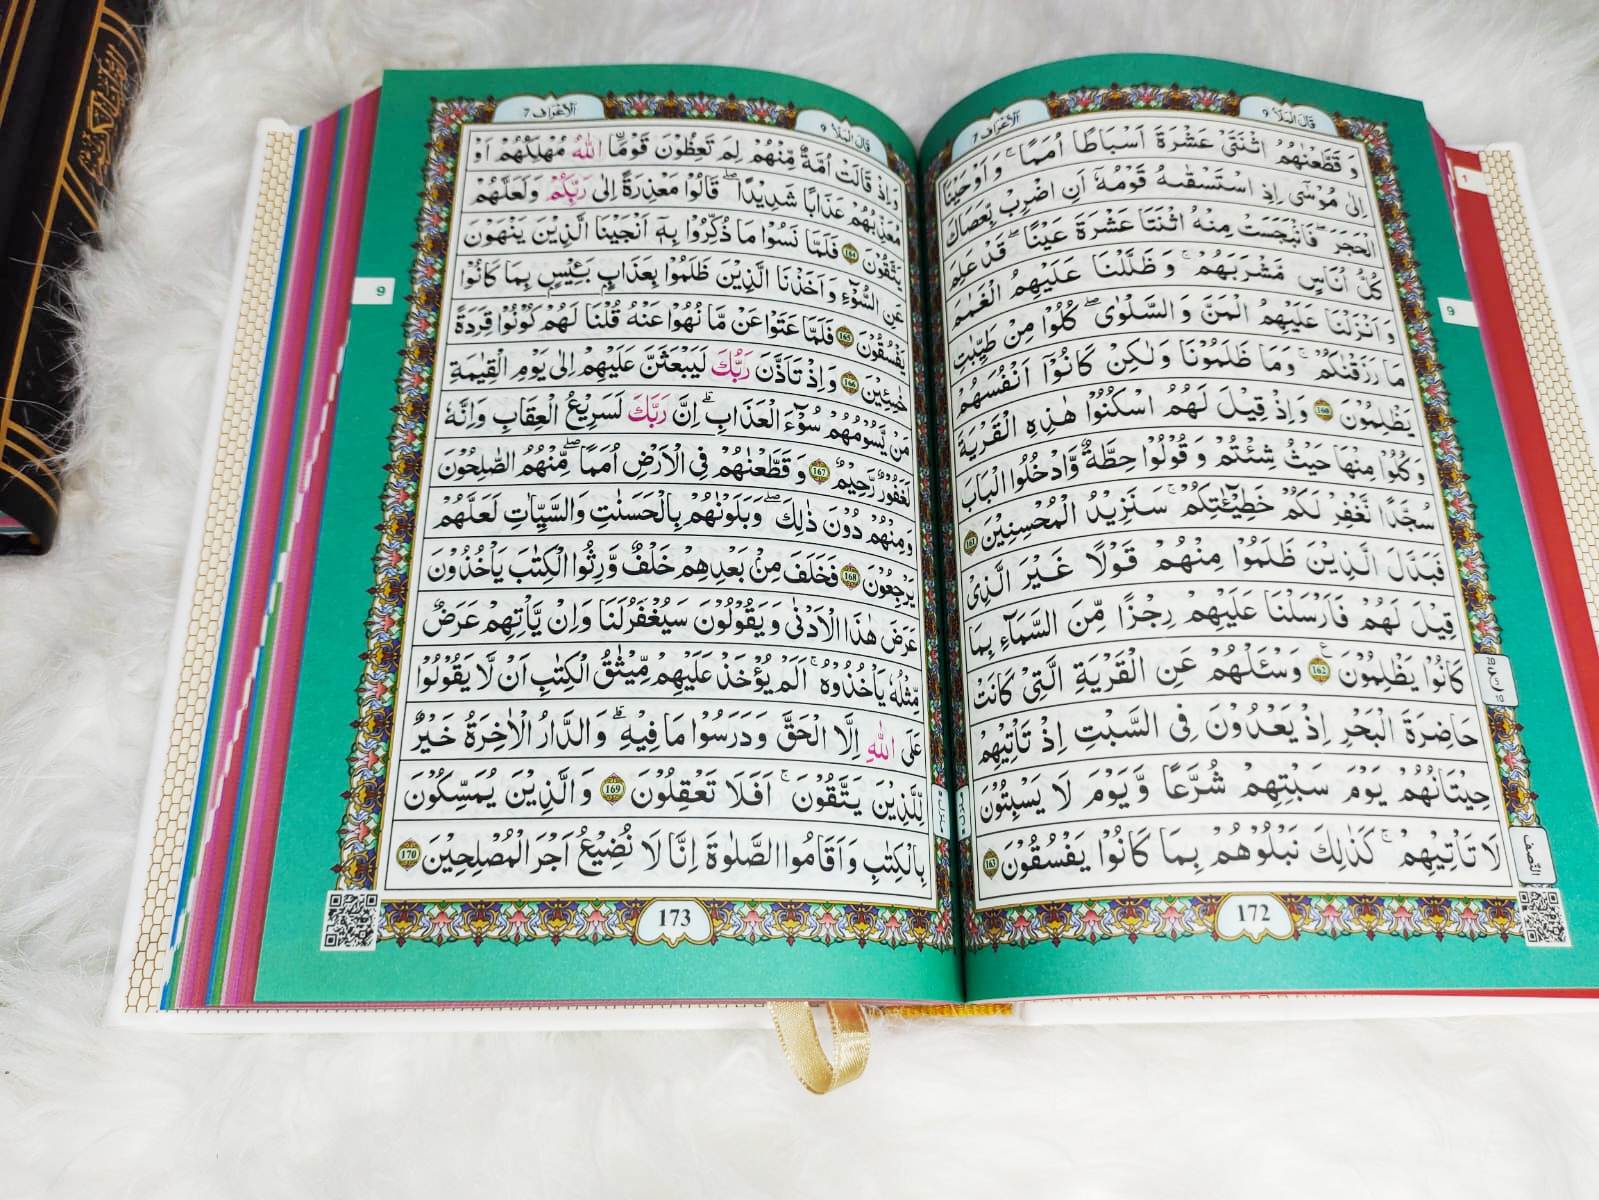 اَلْاَعْرَاف 7
قَالَ الْمَلَأُ 9
وَ قَطَّعْنٰهُمُ اثْنَتَیْ عَشْرَةَ اَسْبَاطًا اُمَمًا ؕ وَ اَوْحَیْنَاۤ
اِلٰی مُوْسٰۤی اِذِ اسْتَسْقٰىهُ قَوْمُهٗۤ اَنِ اضْرِبْ بِّعَصَاكَ
الْحَجَرَ ۚ فَانْۢبَجَسَتْ مِنْهُ اثْنَتَا عَشْرَةَ عَیْنًا ؕ قَدْ عَلِمَ
كُلُّ اُنَاسٍ مَّشْرَبَهُمْ ؕ وَ ظَلَّلْنَا عَلَیْهِمُ الْغَمَامَ
وَ اَنْزَلْنَا عَلَیْهِمُ الْمَنَّ وَ السَّلْوٰی ؕ كُلُوْا مِنْ طَیِّبٰتِ
مَا رَزَقْنٰكُمْ ؕ وَمَا ظَلَمُوْنَا وَ لٰكِنْ كَانُوْۤا اَنْفُسَهُمْ
یَظْلِمُوْنَ 160 وَ اِذْ قِیْلَ لَهُمُ اسْكُنُوْا هٰذِهِ الْقَرْیَةَ
وَ كُلُوْا مِنْهَا حَیْثُ شِئْتُمْ وَ قُوْلُوْا حِطَّةٌ وَّ ادْخُلُوا الْبَابَ
سُجَّدًا نَّغْفِرْ لَكُمْ خَطِیْٓـٰٔتِكُمْ ؕ سَنَزِیْدُ الْمُحْسِنِیْنَ 161
فَبَدَّلَ الَّذِیْنَ ظَلَمُوْا مِنْهُمْ قَوْلًا غَیْرَ الَّذِیْ
قِیْلَ لَهُمْ فَاَرْسَلْنَا عَلَیْهِمْ رِجْزًا مِّنَ السَّمَآءِ بِمَا
كَانُوْا یَظْلِمُوْنَ 162 وَسْـَٔلْهُمْ عَنِ الْقَرْیَةِ الَّتِیْ كَانَتْ
حَاضِرَةَ الْبَحْرِ اِذْ یَعْدُوْنَ فِی السَّبْتِ اِذْ تَاْتِیْهِمْ
حِیْتَانُهُمْ یَوْمَ سَبْتِهِمْ شُرَّعًا وَّ یَوْمَ لَا یَسْبِتُوْنَ
لَا تَاْتِیْهِمْ ۛ كَذٰلِكَ نَبْلُوْهُمْ بِمَا كَانُوْا یَفْسُقُوْنَ 163
9
1
النِّصْف
172
اَلْاَعْرَاف 7
قَالَ الْمَلَأُ 9
وَ اِذْ قَالَتْ اُمَّةٌ مِّنْهُمْ لِمَ تَعِظُوْنَ قَوْمَاۙ اللّٰهُ مُهْلِكُهُمْ اَوْ
مُعَذِّبُهُمْ عَذَابًا شَدِیْدًا ؕ قَالُوْا مَعْذِرَةً اِلٰی رَبِّكُمْ وَ لَعَلَّهُمْ
یَتَّقُوْنَ 164 فَلَمَّا نَسُوْا مَا ذُكِّرُوْا بِهٖۤ اَنْجَیْنَا الَّذِیْنَ یَنْهَوْنَ
عَنِ السُّوْٓءِ وَ اَخَذْنَا الَّذِیْنَ ظَلَمُوْا بِعَذَابٍۭ بَىِٕیْسٍۭ بِمَا كَانُوْا
یَفْسُقُوْنَ 165 فَلَمَّا عَتَوْا عَنْ مَّا نُهُوْا عَنْهُ قُلْنَا لَهُمْ كُوْنُوْا قِرَدَةً
خٰسِـِٕیْنَ 166 وَ اِذْ تَاَذَّنَ رَبُّكَ لَیَبْعَثَنَّ عَلَیْهِمْ اِلٰی یَوْمِ الْقِیٰمَةِ
مَنْ یَّسُوْمُهُمْ سُوْٓءَ الْعَذَابِ ؕ اِنَّ رَبَّكَ لَسَرِیْعُ الْعِقَابِ وَ اِنَّهٗ
لَغَفُوْرٌ رَّحِیْمٌ 167 وَ قَطَّعْنٰهُمْ فِی الْاَرْضِ اُمَمًا ۚ مِنْهُمُ الصّٰلِحُوْنَ
وَ مِنْهُمْ دُوْنَ ذٰلِكَ ؗ وَ بَلَوْنٰهُمْ بِالْحَسَنٰتِ وَ السَّیِّاٰتِ لَعَلَّهُمْ
یَرْجِعُوْنَ 168 فَخَلَفَ مِنْۢ بَعْدِهِمْ خَلْفٌ وَّرِثُوا الْكِتٰبَ یَاْخُذُوْنَ
عَرَضَ هٰذَا الْاَدْنٰی وَ یَقُوْلُوْنَ سَیُغْفَرُ لَنَا وَ اِنْ یَّاْتِهِمْ عَرَضٌ
مِّثْلُهٗ یَاْخُذُوْهُ ؕ اَلَمْ یُؤْخَذْ عَلَیْهِمْ مِّیْثَاقُ الْكِتٰبِ اَنْ لَّا یَقُوْلُوْا
عَلَی اللّٰهِ اِلَّا الْحَقَّ وَ دَرَسُوْا مَا فِیْهِ ؕ وَ الدَّارُ الْاٰخِرَةُ خَیْرٌ
لِّلَّذِیْنَ یَتَّقُوْنَ ؕ اَفَلَا تَعْقِلُوْنَ 169 وَ الَّذِیْنَ یُمَسِّكُوْنَ
بِالْكِتٰبِ وَ اَقَامُوا الصَّلٰوةَ اِنَّا لَا نُضِیْعُ اَجْرَ الْمُصْلِحِیْنَ 170
9
173